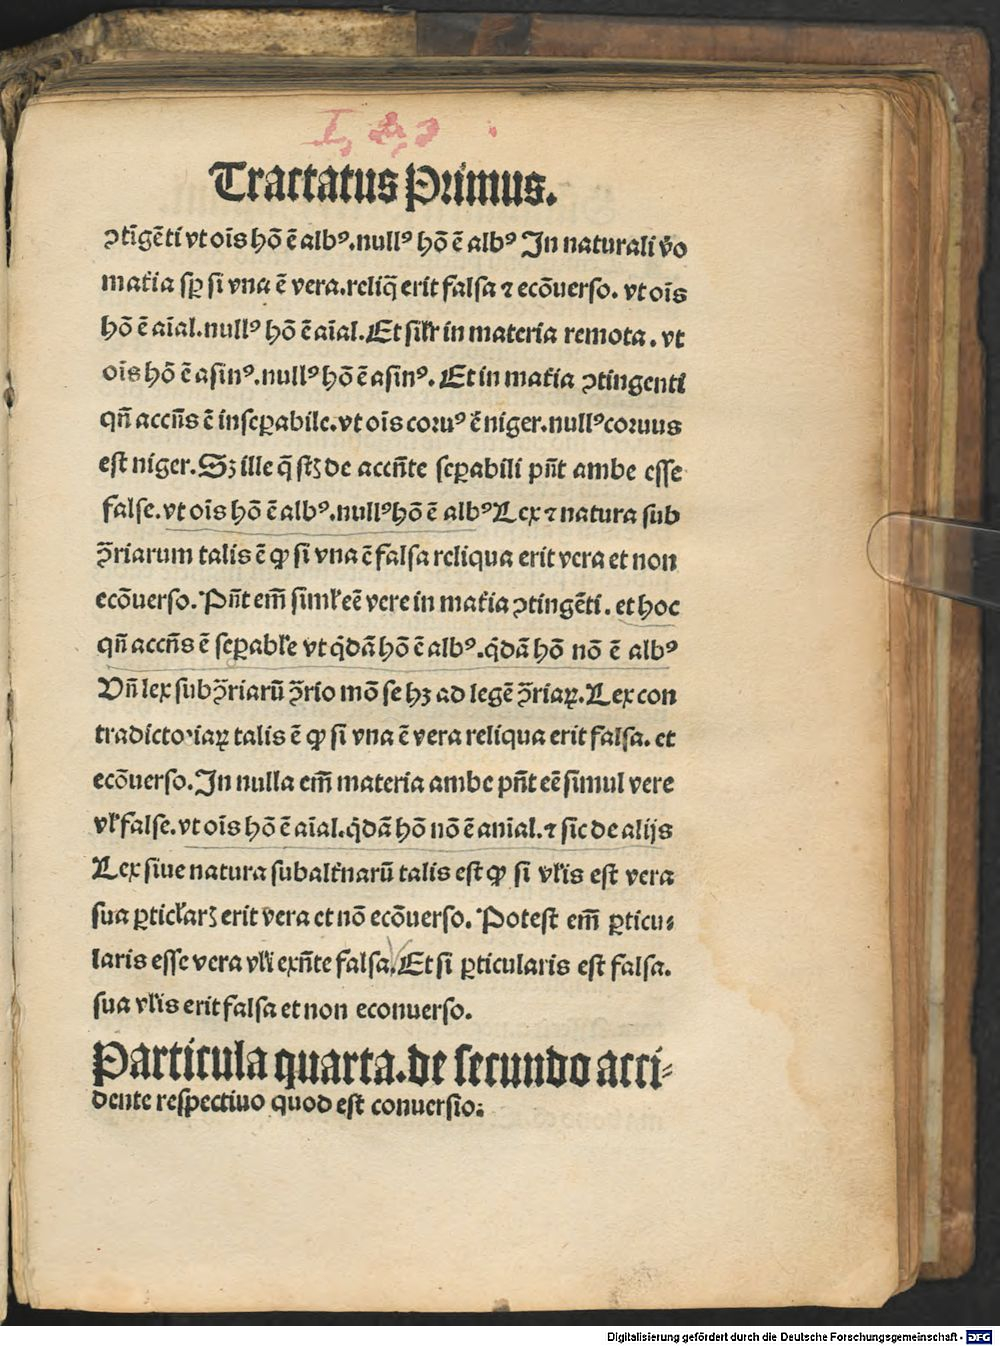 Tractatus Primus.
ↄtigẽti vt oı̄s hõ ẽ albꝰ.nullꝰ hõ ẽ albꝰ In naturali v̊o
mat̃ia sꝑ si vna ẽ vera.reliq̃ erit falsa ⁊ ecõuerso. vt oı̄s
hõ ẽ aı̄al.nullꝰ hõ ẽ aı̄al.Et sił̃r in materia remota. vt
oı̄s hõ ẽ asinꝰ.nullꝰ hõ ẽ asinꝰ. Et in mat̃ia ↄtingenti
qñ accñs ẽ inseꝑabile.vt oı̄s coruꝰ ẽ niger.nullꝰ coruus
est niger.Sꝫ ille q̃ st̃ꝫ de accñte seꝑabili pñt ambe esse
false.vt oı̄s hõ ẽ albꝰ.nullꝰ hõ ẽ albꝰ Lex ⁊ natura sub
ↄ̃riarum talis ẽ ꝙ si vna ẽ falsa reliqua erit vera et non
ecõuerso. Pñt em̃ siml̕ eẽ vere in mat̃ia ↄtingẽti. et hoc
qñ accñs ẽ seꝑabl̕e vt q̇dã hõ ẽ albꝰ.q̇dã hõ nõ ẽ albꝰ
Vñ lex subↄ̃riarũ ↄ̃rio mõ se hꝫ ad legẽ ↄ̃riaꝝ. Lex con
tradictoriaꝝ talis ẽ ꝙ si vna ẽ vera reliqua erit falsa. et
ecõuerso. In nulla em̃ materia ambe pñt eẽ simul vere
vl̕ false.vt oı̄s hõ ẽ aı̄al.q̇dã hõ nõ ẽ anı̄al.⁊ sic de alijs
Lex siue natura subalt̃narũ talis est ꝙ si vl̕is est vera
sua ꝑticl̕arꝫ erit vera et nõ ecõuerso. Potest em̃ ꝑticu⸗
laris esse vera vl̕i exñte falsa. Et si ꝑticularis est falsa.
sua vl̕is erit falsa et non econuerso.
Particula quarta.de secundo acci⸗
dente respectiuo quod est conuersio:
Digitalisierung gefördert durch die Deutsche Forschungsgemeinschaft - DFG